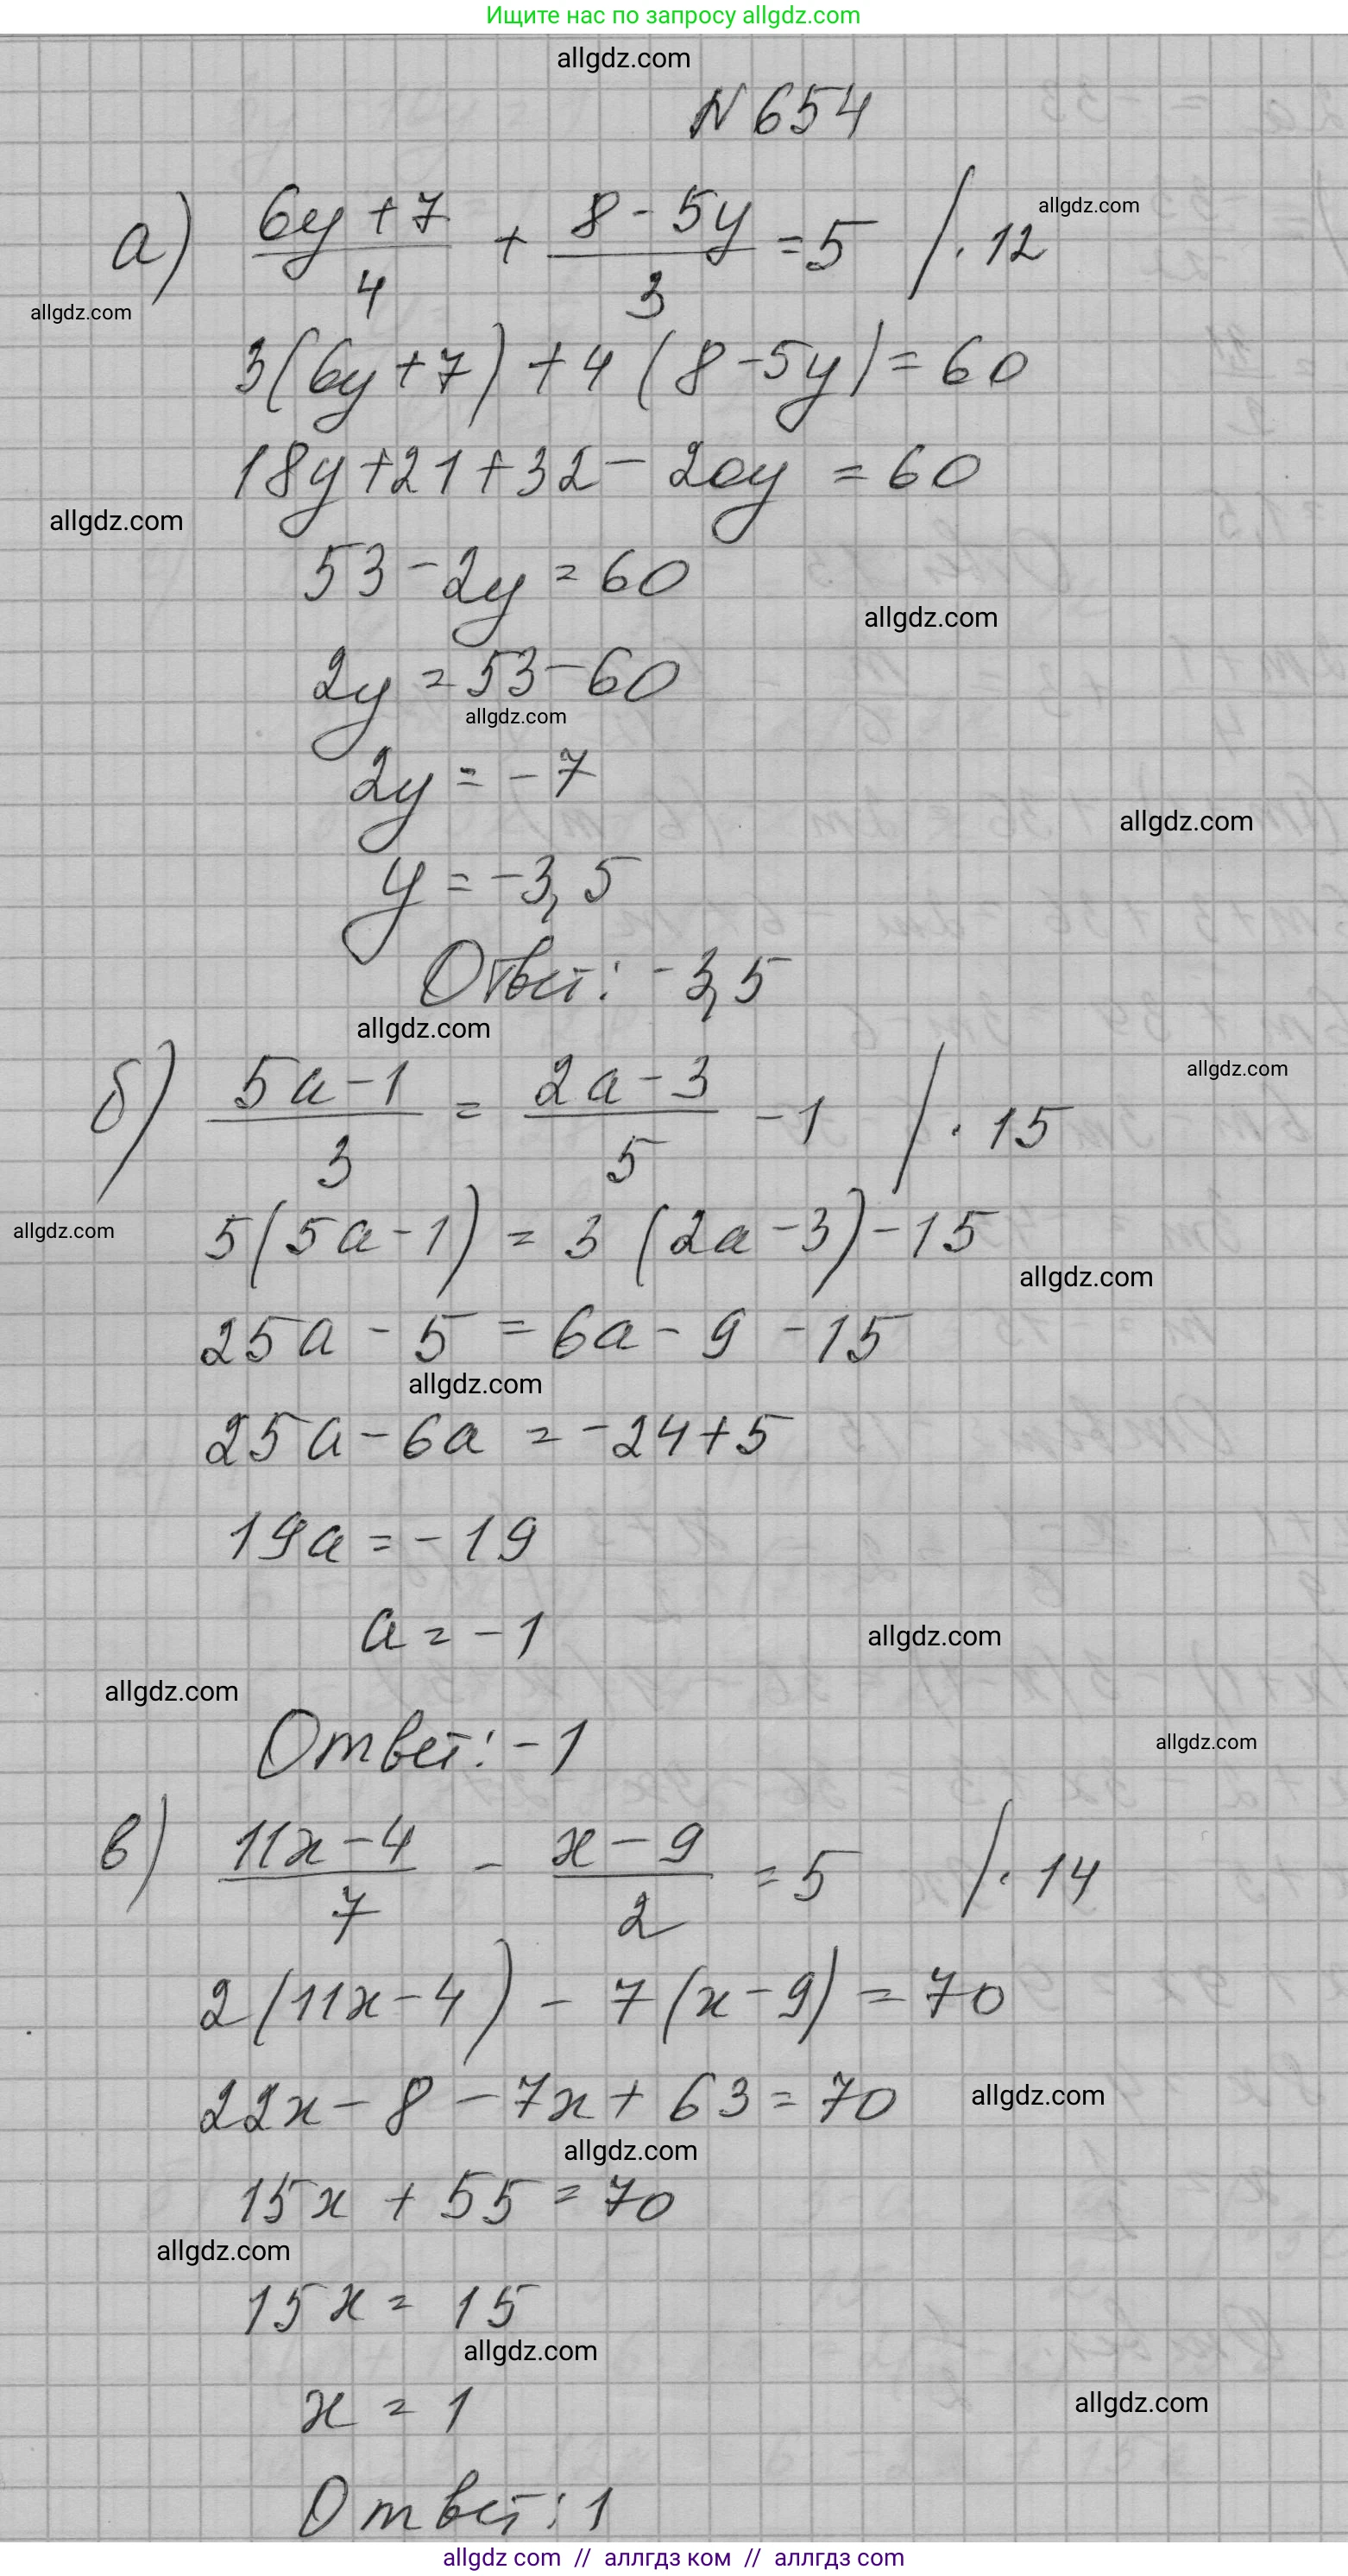 Ищите нас по запросу allgdz.com
allgdz.com
N 654
а) (6y + 7)/4 + (8 - 5y)/3 = 5 / · 12
allgdz.com
allgdz.com
3(6y + 7) + 4(8 - 5y) = 60
18y + 21 + 32 - 20y = 60
allgdz.com
53 - 2y = 60
allgdz.com
2y = 53 - 60
allgdz.com
2y = - 7
allgdz.com
y = -3,5
Ответ: -3,5
allgdz.com
б) (5a - 1)/3 = (2a - 3)/5 - 1 / · 15
allgdz.com
allgdz.com
5(5a - 1) = 3(2a - 3) - 15
allgdz.com
25a - 5 = 6a - 9 - 15
allgdz.com
25a - 6a = -24 + 5
allgdz.com
19a = -19
a = -1
allgdz.com
allgdz.com
Ответ: -1
allgdz.com
в) (11x - 4)/7 - (x - 9)/2 = 5 / · 14
2(11x - 4) - 7(x - 9) = 70
22x - 8 - 7x + 63 = 70
allgdz.com
allgdz.com
15x + 55 = 70
allgdz.com
15x = 15
allgdz.com
x = 1
allgdz.com
Ответ: 1
allgdz com // аллгдз ком // аллгдз com